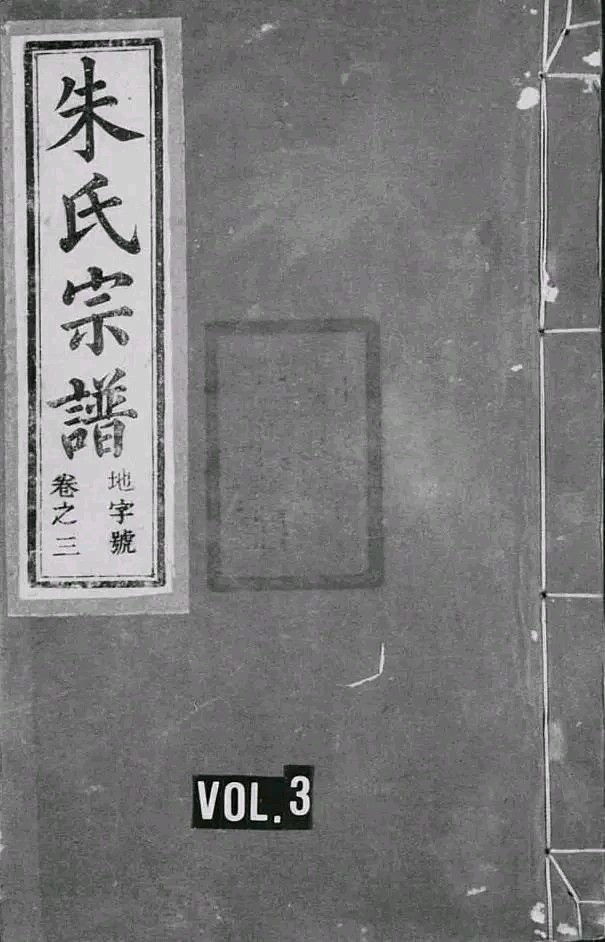 朱氏宗譜
地字號
卷之三
VOL.3